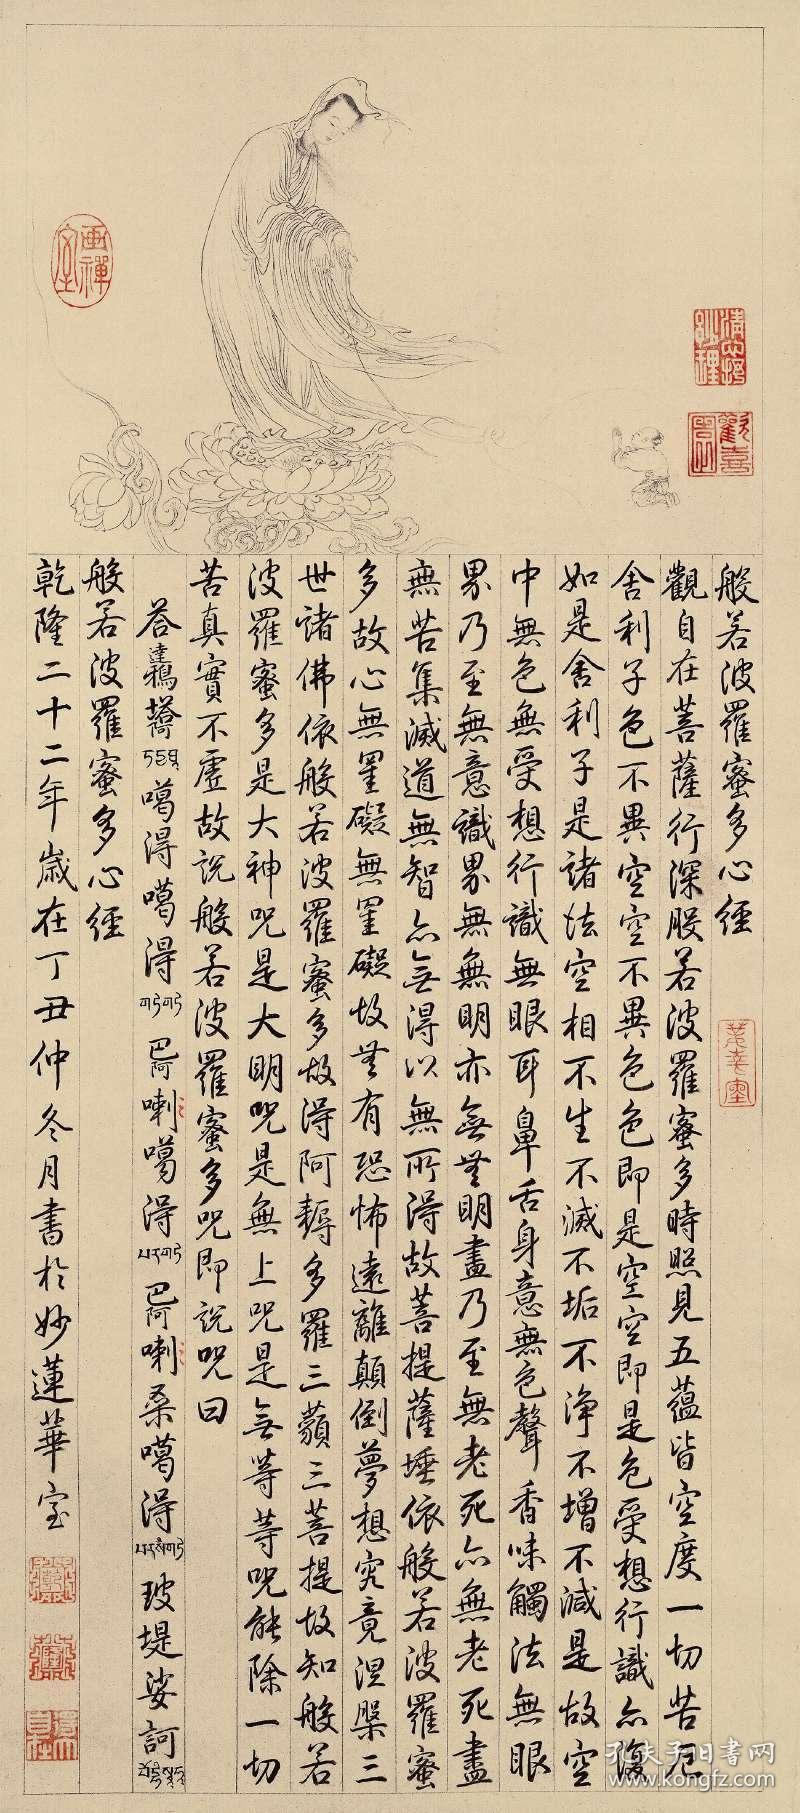 般若波羅蜜多心經
觀自在菩薩行深般若波羅蜜多時照見五蘊皆空度一切苦厄
舍利子色不異空空不異色色即是空空即是色受想行識亦復
如是舍利子是諸法空相不生不滅不垢不淨不增不減是故空
中無色無受想行識無眼耳鼻舌身意無色聲香味觸法無眼
界乃至無意識界無無明亦無無明盡乃至無老死亦無老死盡
無苦集滅道無智亦無得以無所得故菩提薩埵依般若波羅蜜
多故心無罣礙無罣礙故無有恐怖遠離顛倒夢想究竟涅槃三
世諸佛依般若波羅蜜多故得阿耨多羅三藐三菩提故知般若
波羅蜜多是大神咒是大明咒是無上咒是無等等咒能除一切
苦真實不虛故說般若波羅蜜多咒即說咒曰
答 噶得噶得 巴阿喇噶得 巴阿喇桑噶得 玻堤娑訶
般若波羅蜜多心經
乾隆二十二年歲在丁丑仲冬月書於妙蓮華室
畫禪室
歡喜園
孔夫子旧书网
www.kongfz.com